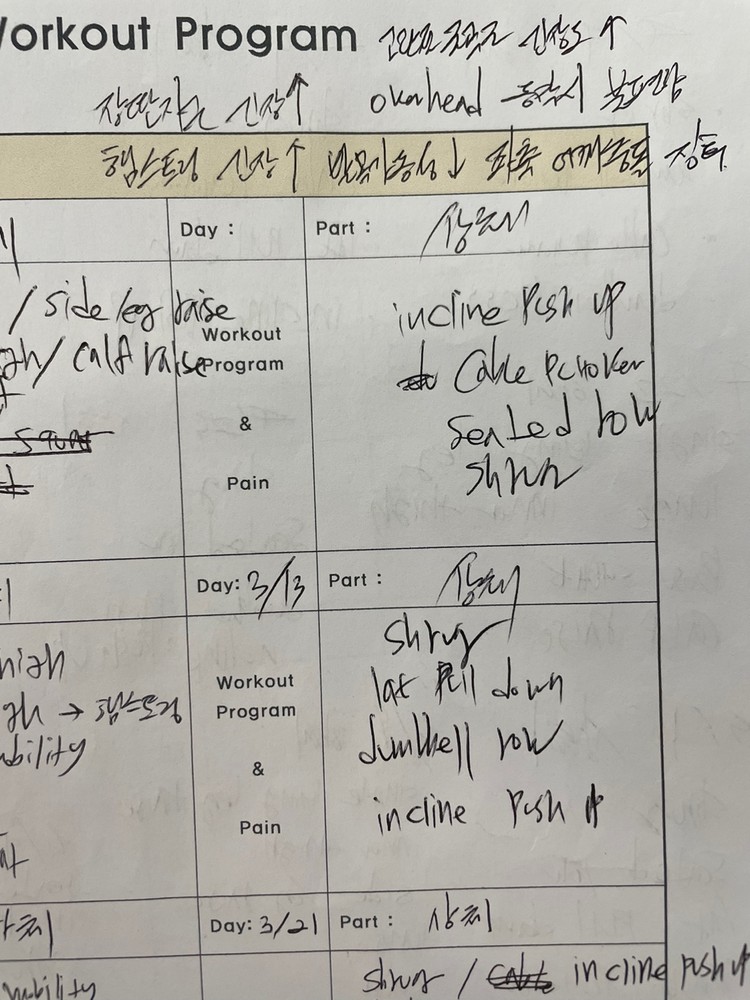 Workout Program 긴장도 ↑
장딴지근 긴장↑ overhead 동작시 불편감
햄스트링 긴장↑ 발목가동성↓ 좌측 어깨충돌
Day : Part : 상체
/ side leg raise
/ calf raise
Workout
Program
&
Pain
incline push up
Cable
Seated row
shrug
Day: 3/13 Part : 상체
→ 햄스트링
Workout
Program
&
Pain
shrug
lat pull down
dumbbell row
incline push up
Day: 3/21 Part : 상체
shrug / incline push up